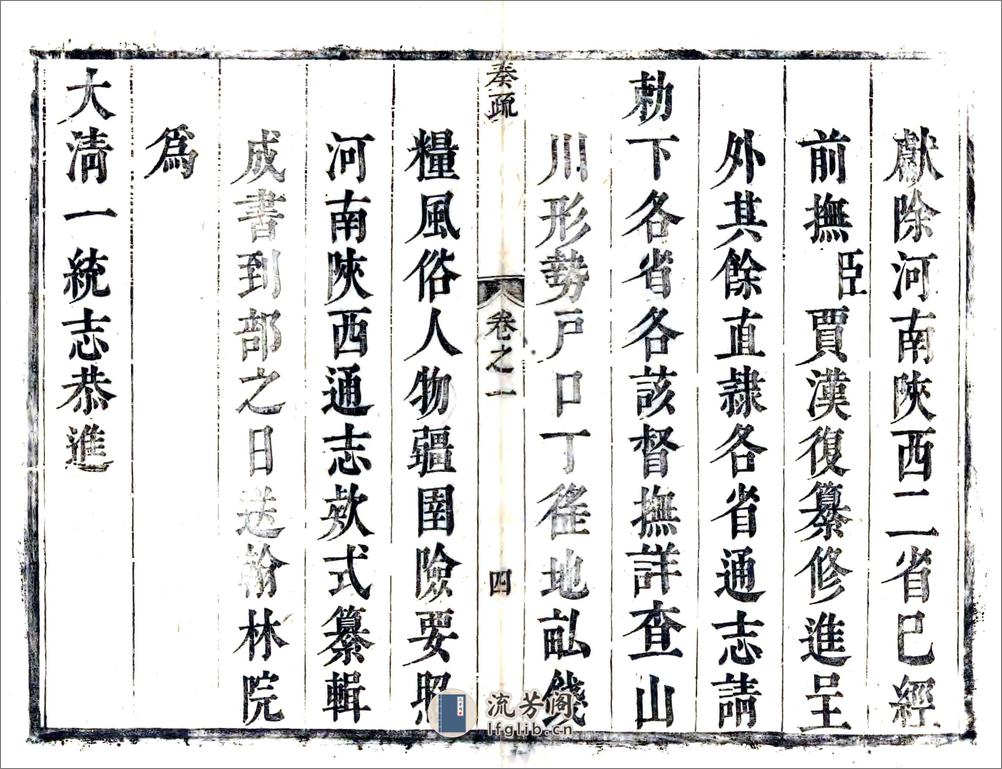 獻除河南陝西二省已經
前撫臣賈漢復纂修進呈
外其餘直隷各省通志請
勅下各省各該督撫詳查山
川形勢戶口丁徭地畝錢
奏疏 卷之一 四
糧風俗人物疆圉險要照
河南陝西通志欵式纂輯
成書到部之日送翰林院
爲
大清一統志恭進
流芳阁
lfglib.cn